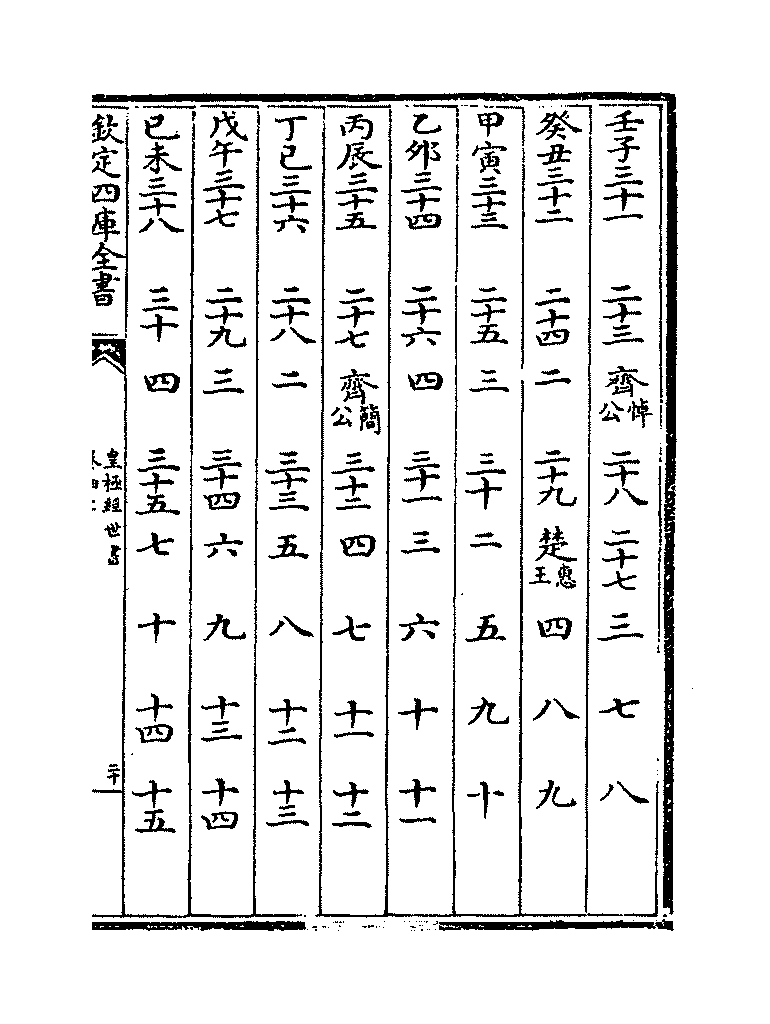 壬子三十一 二十三 齊悼公 二十八 二十七 三 七 八
癸丑三十二 二十四 二 二十九 楚惠王 四 八 九
甲寅三十三 二十五 三 三十 二 五 九 十
乙卯三十四 二十六 四 三十一 三 六 十 十一
丙辰三十五 二十七 齊簡公 三十二 四 七 十一 十二
丁巳三十六 二十八 二 三十三 五 八 十二 十三
戊午三十七 二十九 三 三十四 六 九 十三 十四
己未三十八 三十 四 三十五 七 十 十四 十五
欽定四庫全書
皇極經世書
二十